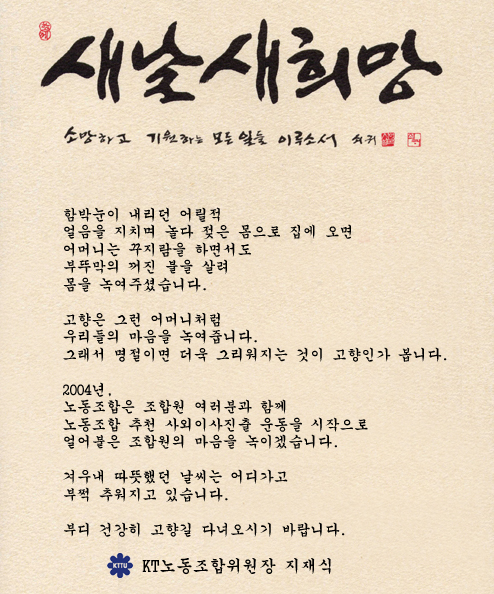 새날새희망
소망하고 기원하는 모든 일들 이루소서
함박눈이 내리던 어릴적
얼음을 지치며 놀다 젖은 몸으로 집에 오면
어머니는 꾸지람을 하면서도
부뚜막의 꺼진 불을 살려
몸을 녹여주셨습니다.
고향은 그런 어머니처럼
우리들의 마음을 녹여줍니다.
그래서 명절이면 더욱 그리워지는 것이 고향인가 봅니다.
2004년,
노동조합은 조합원 여러분과 함께
노동조합 추천 사외이사진출 운동을 시작으로
얼어붙은 조합원의 마음을 녹이겠습니다.
겨우내 따뜻했던 날씨는 어디가고
부쩍 추워지고 있습니다.
부디 건강히 고향길 다녀오시기 바랍니다.
KTTU KT노동조합위원장 지재식